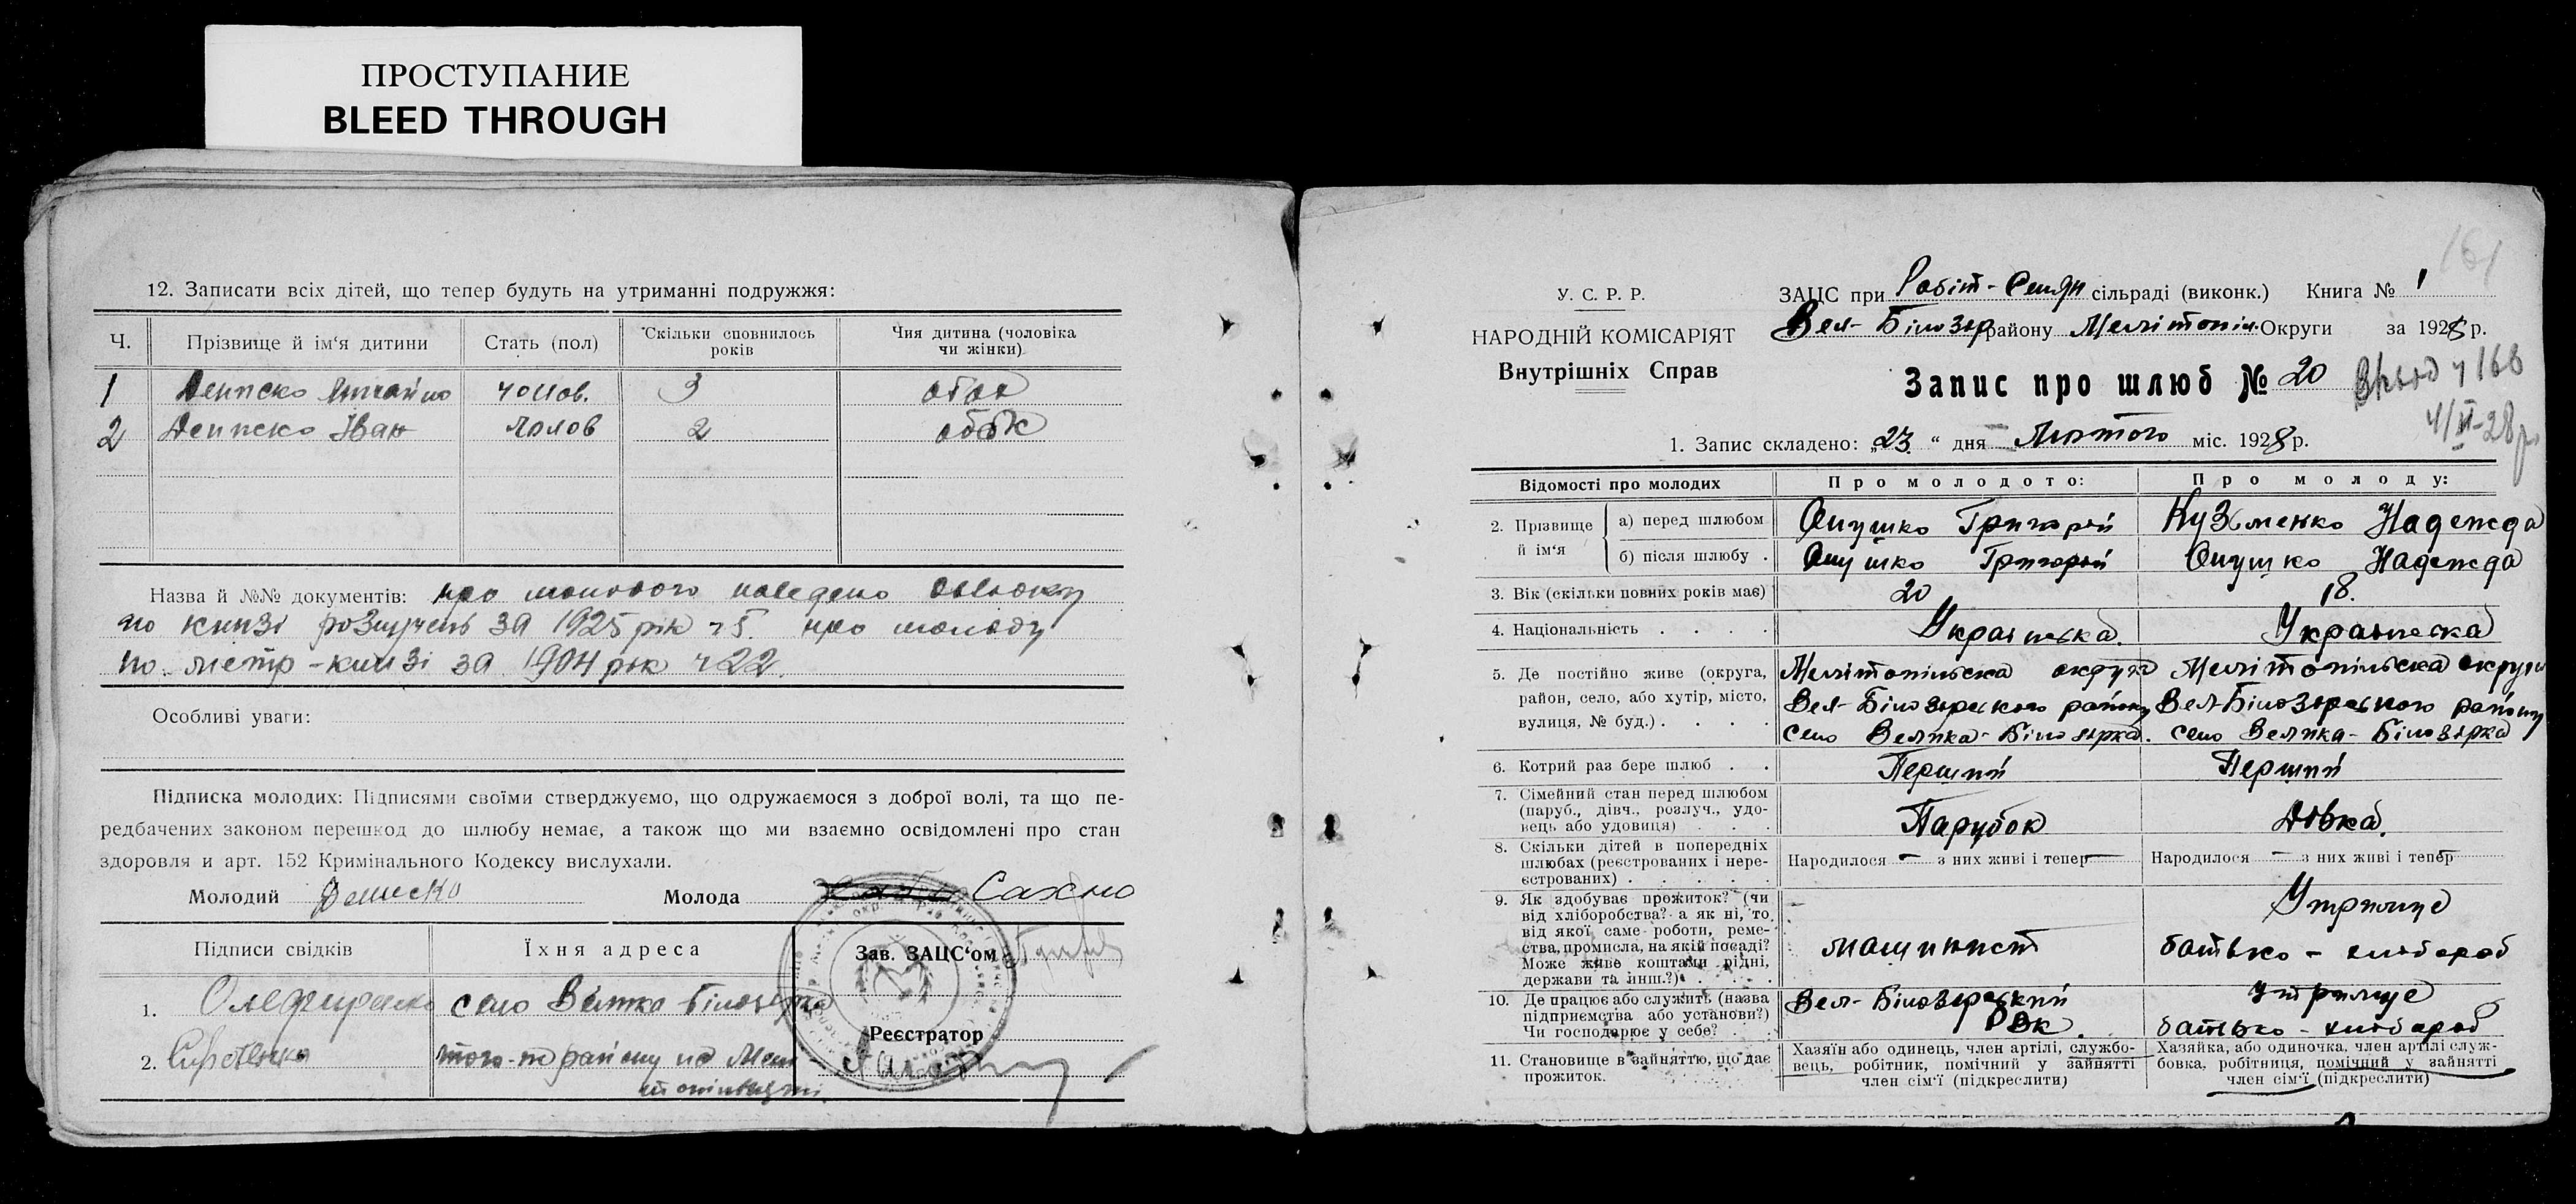 ПРОСТУПАНИЕ
BLEED THROUGH
12. Записати всіх дітей, що тепер будуть на утриманні подружжя:
Ч. Прізвище й ім'я дитини Стать (пол) Скільки сповнилось років Чия дитина (чоловіка чи жінки)
1 чолов. 3
2 Іван 2
Назва й №№ документів: про молодого
по книзі за 1925 рік ч 5. про молоду
по метр-книзі за 1904 рік ч 22.
Особливі уваги:
Підписка молодих: Підписями своїми стверджуємо, що одружаємося з доброї волі, та що пе-
редбачених законом перешкод до шлюбу немає, а також що ми взаємно освідомлені про стан
здоровля и арт. 152 Кримінального Кодексу вислухали.
Молодий Молода Сахно
Підписи свідків Їхня адреса Зав. ЗАЦС'ом
1. село
2. того-ж району
Реєстратор
161
У. С. Р. Р.
НАРОДНІЙ КОМІСАРІЯТ
Внутрішніх Справ
ЗАЦС при Робіт-Селян сільраді (виконк.) Книга № 1
Вел-Білозер району Мелітопіл. Округи за 1928 р.
Запис про шлюб № 20
ч 168
4/VI-28 р
1. Запис складено: „23" дня Лютого міс. 1928 р.
Відомості про молодих Про молодого: Про молоду:
2. Прізвище й ім'я а) перед шлюбом Опушко Григорій Кузьменко Надежда
б) після шлюбу . Опушко Григорій Опушко Надежда
3. Вік (скільки повних років має) 20 18.
4. Національність . . . . Українська Українська
5. Де постійно живе (округа, Мелітопільська округа Мелітопільська округи
район, село, або хутір, місто, Вел-Білозерського району Вел-Білозерського району
вулиця, № буд.) . . . . село Велика-Білозірка. село Велика-Білозірка
6. Котрий раз бере шлюб . . Перший Перший
7. Сімейний стан перед шлюбом
(паруб., дівч., розлуч., удо-
вець або удовиця) . . . Парубок Дівка.
8. Скільки дітей в попередніх
шлюбах (реєстрованих і нере- Народилося — з них живі і тепер — Народилося — з них живі і тепер
єстрованих) . . . . .
9. Як здобуває прожиток? (чи Утримує
від хліборобства? а як ні, то
від якої саме роботи, реме-
ства, промисла, на якій посаді? машиніст батько - хлібороб
Може живе коштами рідні,
держави та инш.?) . . . .
10. Де працює або служить (назва Вел-Білозерський утримує
підприємства або установи?) РВК.
Чи господарює у себе? . . батько - хлібороб
11. Становище в зайняттю, що дає Хазяїн або одинець, член артілі, службо- Хазяйка, або одиночка, член артілі служ-
прожиток. вець, робітник, помічний у зайнятті бовка, робітниця, помічний у зайнятті
член сім'ї (підкреслити) член сім'ї (підкреслити)